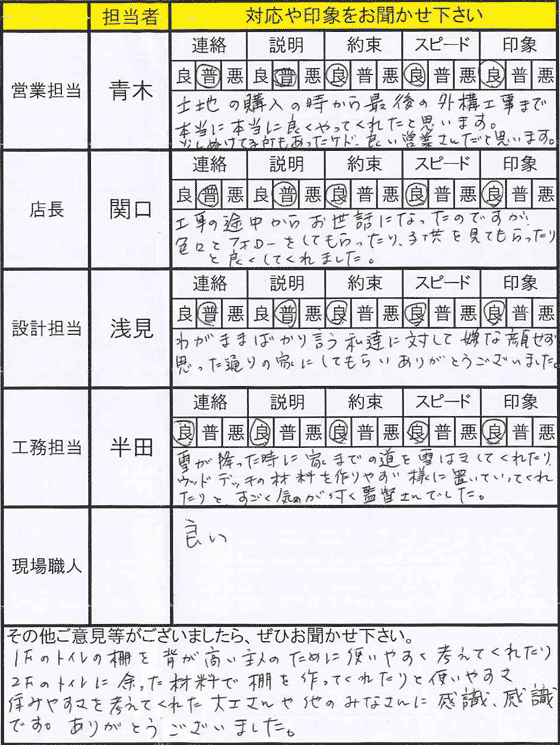 担当者 対応や印象をお聞かせ下さい
営業担当 青木
連絡 説明 約束 スピード 印象
良 普 悪 良 普 悪 良 普 悪 良 普 悪 良 普 悪
土地の購入の時から最後の外構工事まで
本当に本当に良くやってくれたと思います。
少しぬけてる所もあったケド、良い営業さんだと思います。
店長 関口
連絡 説明 約束 スピード 印象
良 普 悪 良 普 悪 良 普 悪 良 普 悪 良 普 悪
工事の途中からお世話になったのですが、
色々とフォローをしてもらったり、子供を見てもらったり
と良くしてくれました。
設計担当 浅見
連絡 説明 約束 スピード 印象
良 普 悪 良 普 悪 良 普 悪 良 普 悪 良 普 悪
わがままばかり言う私達に対して嫌な顔せず
思った通りの家にしてもらいありがとうございました。
工務担当 半田
連絡 説明 約束 スピード 印象
良 普 悪 良 普 悪 良 普 悪 良 普 悪 良 普 悪
雪が降った時に家までの道を雪はきしてくれたり
ウッドデッキの材料を作りやすい様に置いていってくれ
たりとすごく気が付く監督さんでした。
現場職人
良い
その他ご意見等がございましたら、ぜひお聞かせ下さい。
1Fのトイレの棚を背が高い主人のために使いやすく考えてくれたり
2Fのトイレに余った材料で棚を作ってくれたりと使いやすさ
住みやすさを考えてくれた大工さんや他のみなさんに感識、感識
です。ありがとうございました。